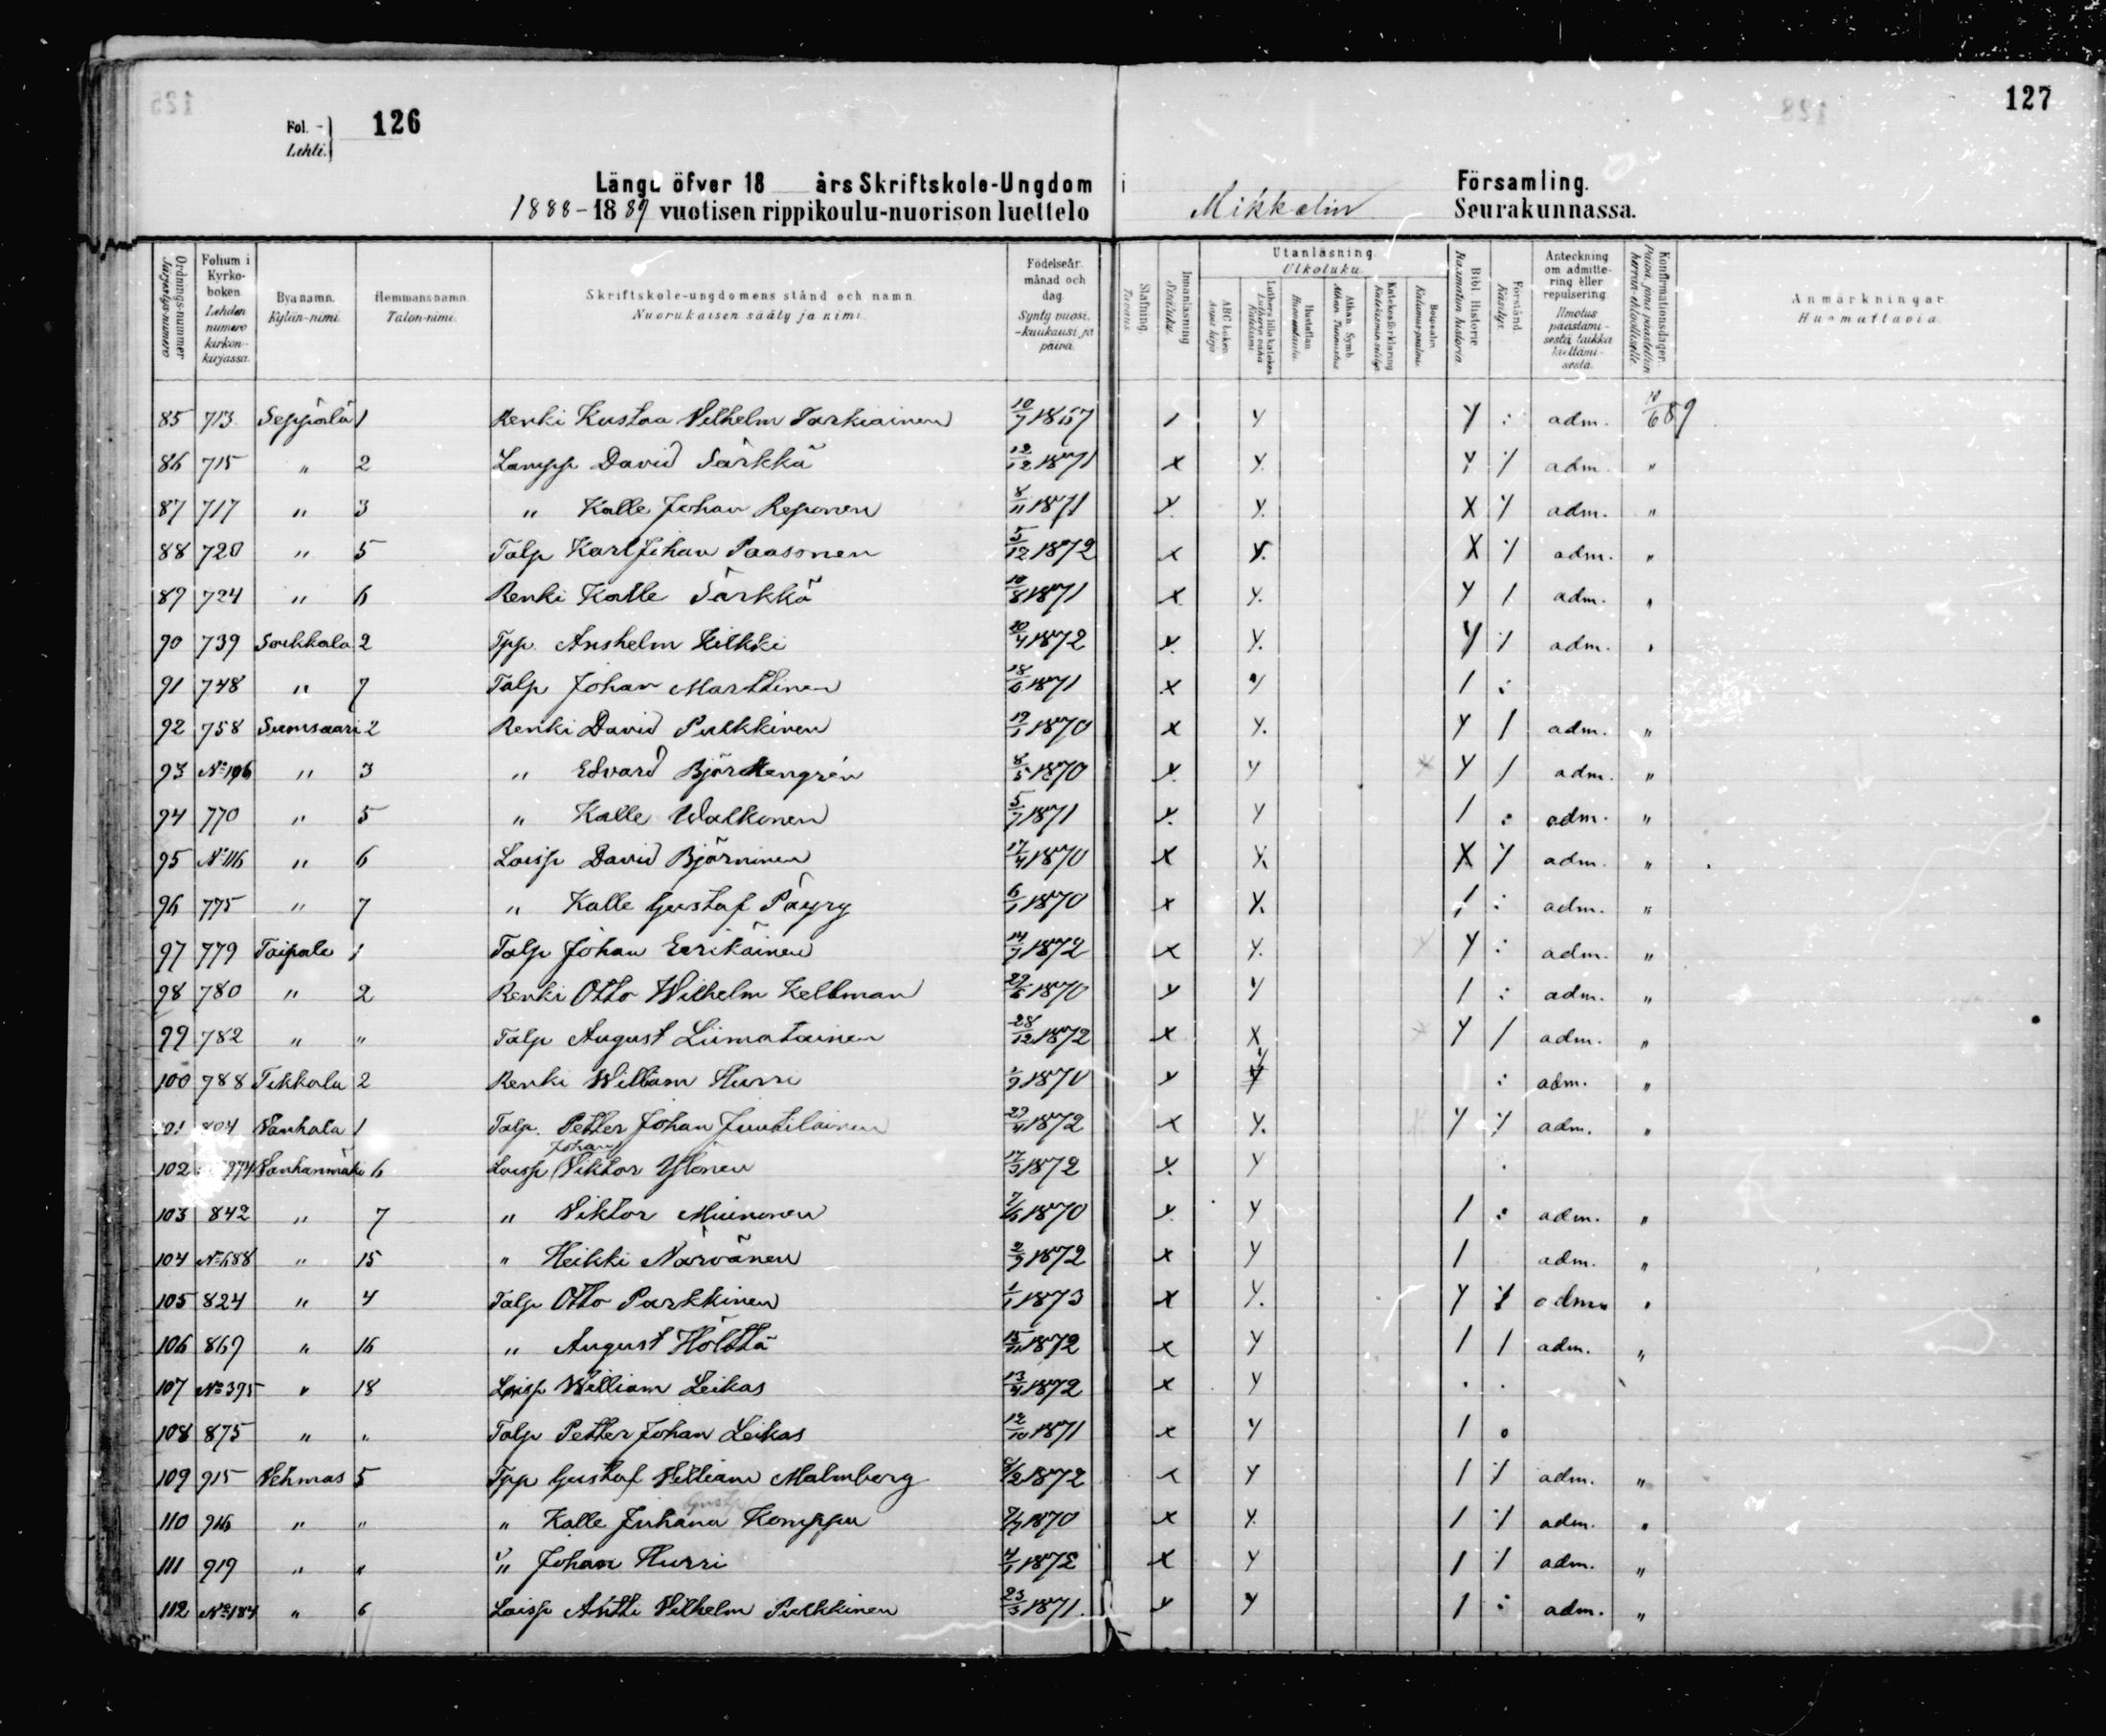 126
127
Fol.
Lehti.
Längd öfver 18 års Skriftskole-Ungdom i Församling.
1888-1889 vuotisen rippikoulu-nuorison luettelo Mikkelin Seurakunnassa.
Ordnings-nummer Järjestys-numero
Folium i Kyrko-boken Lehden numero kirkon-kirjassa.
Byanamn. Kylän-nimi.
Hemmansnamn Talon-nimi.
Skriftskole-ungdomens stånd och namn. Nuorukaisen sääty ja nimi.
Födelseår. månad och dag. Synty vuosi. -kuukausi ja päivä.
Stafning. Tavaus
Innanläsning Sisäluku.
Utanläsning. Ulkoluku.
ABC boken Aapis kirja
Luthers lilla katekes
Hustaflan Huoneentaulu.
Athan. Symb. Athan. Tunnustus.
Katekesförklaring
Botpsalm Katumus-psalmi.
Bibl. Historie Raamatun historia.
Förstånd. Käsitys.
Anteckning om admitte-ring eller repulsering Ilmotus päästämi-sestä taikka kieltämi-sestä.
Konfirmationsdagar.
Anmärkningar. Huomattavia.
85 713 Seppälä 1 Renki Kustaa Vilhelm Tarkiainen 10/7 1867 / Y Y : adm. 10/6 89
86 715 " 2 Lampp David Särkkä 12/12 1871 x Y Y / adm. "
87 717 " 3 " Kalle Johan Reponen 8/11 1871 Y Y X Y adm. "
88 720 " 5 Talp Karl Johan Paasonen 5/12 1872 x Y. X Y adm. "
89 724 " 6 Renki Kalle Särkkä 10/8 1871 x Y. Y / adm. "
90 739 Soukkala 2 Tpp. Anshelm Kilkki 20/4 1872 Y. Y. Y Y adm. "
91 748 " 7 Talp Johan Marttinen 18/6 1871 x Y / :
92 758 Sumsaari 2 Renki David Pulkkinen 19/1 1870 x Y. Y / adm. "
93 No 196 " 3 " Edvard 8/5 1870 Y. Y Y / adm. "
94 770 " 5 " Kalle Walkonen 5/7 1871 Y. Y / : adm. "
95 No 116 " 6 Loisp David Björninen 17/4 1870 x Y. X Y adm. "
96 775 " 7 " Kalle Gustaf Päyry 6/1 1870 x Y. / : adm. "
97 779 Taipale 1 Talp Johan Eerikäinen 14/7 1872 x Y. Y : adm. "
98 780 " 2 Renki Otto Wilhelm Kellman 29/6 1870 Y Y / : adm. "
99 782 " " Talp August Liimatainen 28/12 1872 x X Y / adm. "
100 788 Tikkala 2 Renki William Hurri 1/9 1870 Y Y : adm. "
101 804 Vanhala 1 Talp. Petter Johan Juutilainen 29/4 1872 x Y. Y Y adm. "
Johan
102 974 Vanhanmäki 6 Loisp Viktor Ylönen 17/3 1872 Y. Y .
103 842 " 7 " Viktor Miinonen 1870 Y. Y / : adm. "
104 No 688 " 15 " Heikki Närvänen 2/9 1872 x Y / adm. "
105 824 " 4 Talp Otto Parkkinen 1/1 1873 x Y. Y Y adm. "
106 869 " 16 " August Hölttä 15/11 1872 x Y / / adm. "
107 No 395 " 18 Loisp William Leikas 13/4 1872 x Y . .
108 875 " " Talp Petter Johan Leikas 12/10 1871 x Y / .
109 915 Vehmas 5 Tpp Gustaf William Malmberg 1872 x Y / Y adm. "
Gust
110 916 " " " Kalle Juhana Komppa 1870 x Y. / Y adm. "
111 919 " " " Johan Hurri 4/1 1872 x Y / Y adm. "
112 No 184 " 6 Loisp Antti Vilhelm Pulkkinen 23/3 1871. Y Y / : adm. "